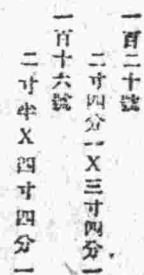 一百二十號
二寸四分一X三寸四分一
一百十六號
二寸半X四寸四分一